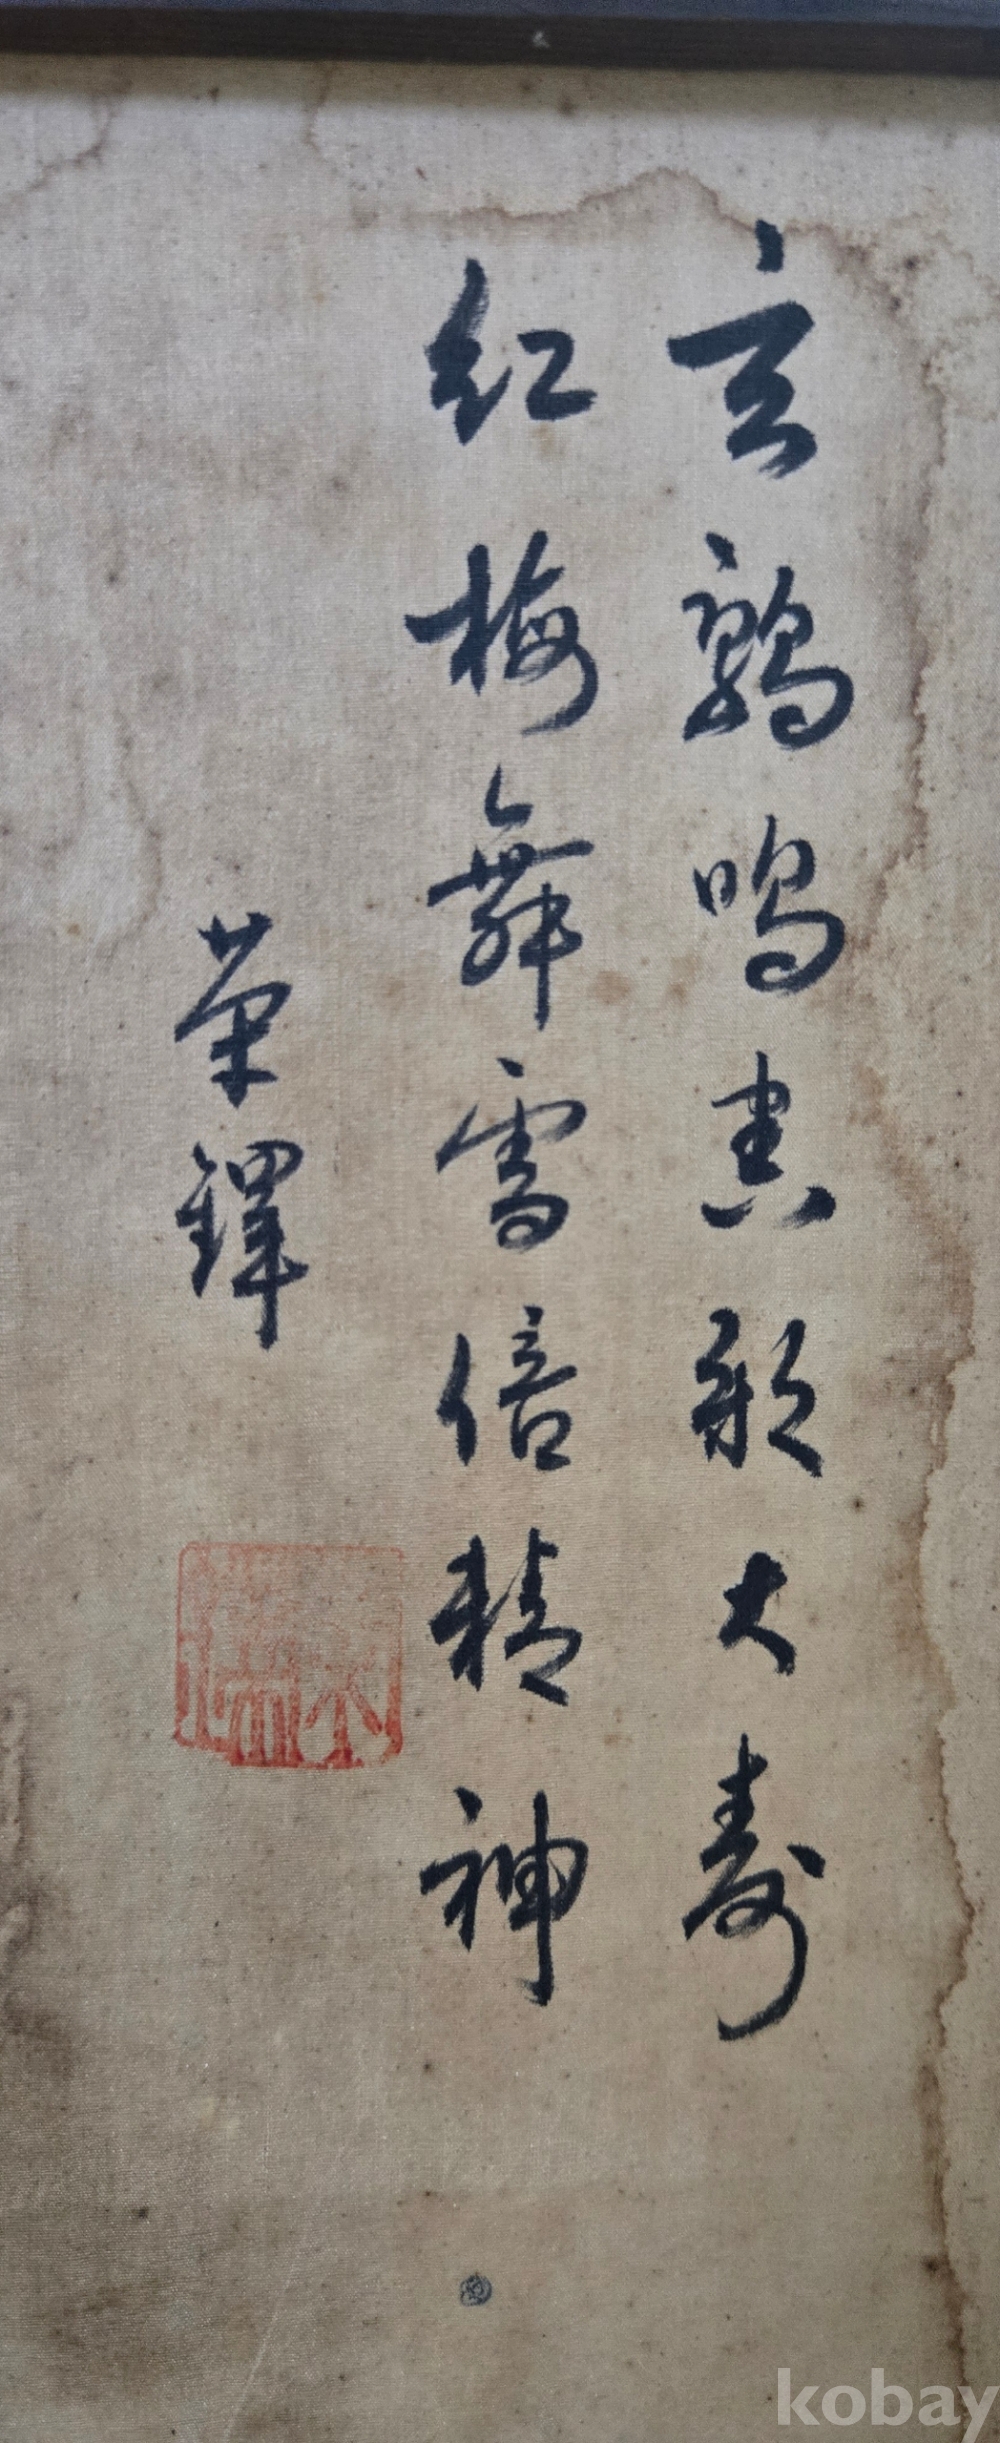 玄鶴鳴春放大壽
紅梅舞雪倍精神
榮鐸
kobay